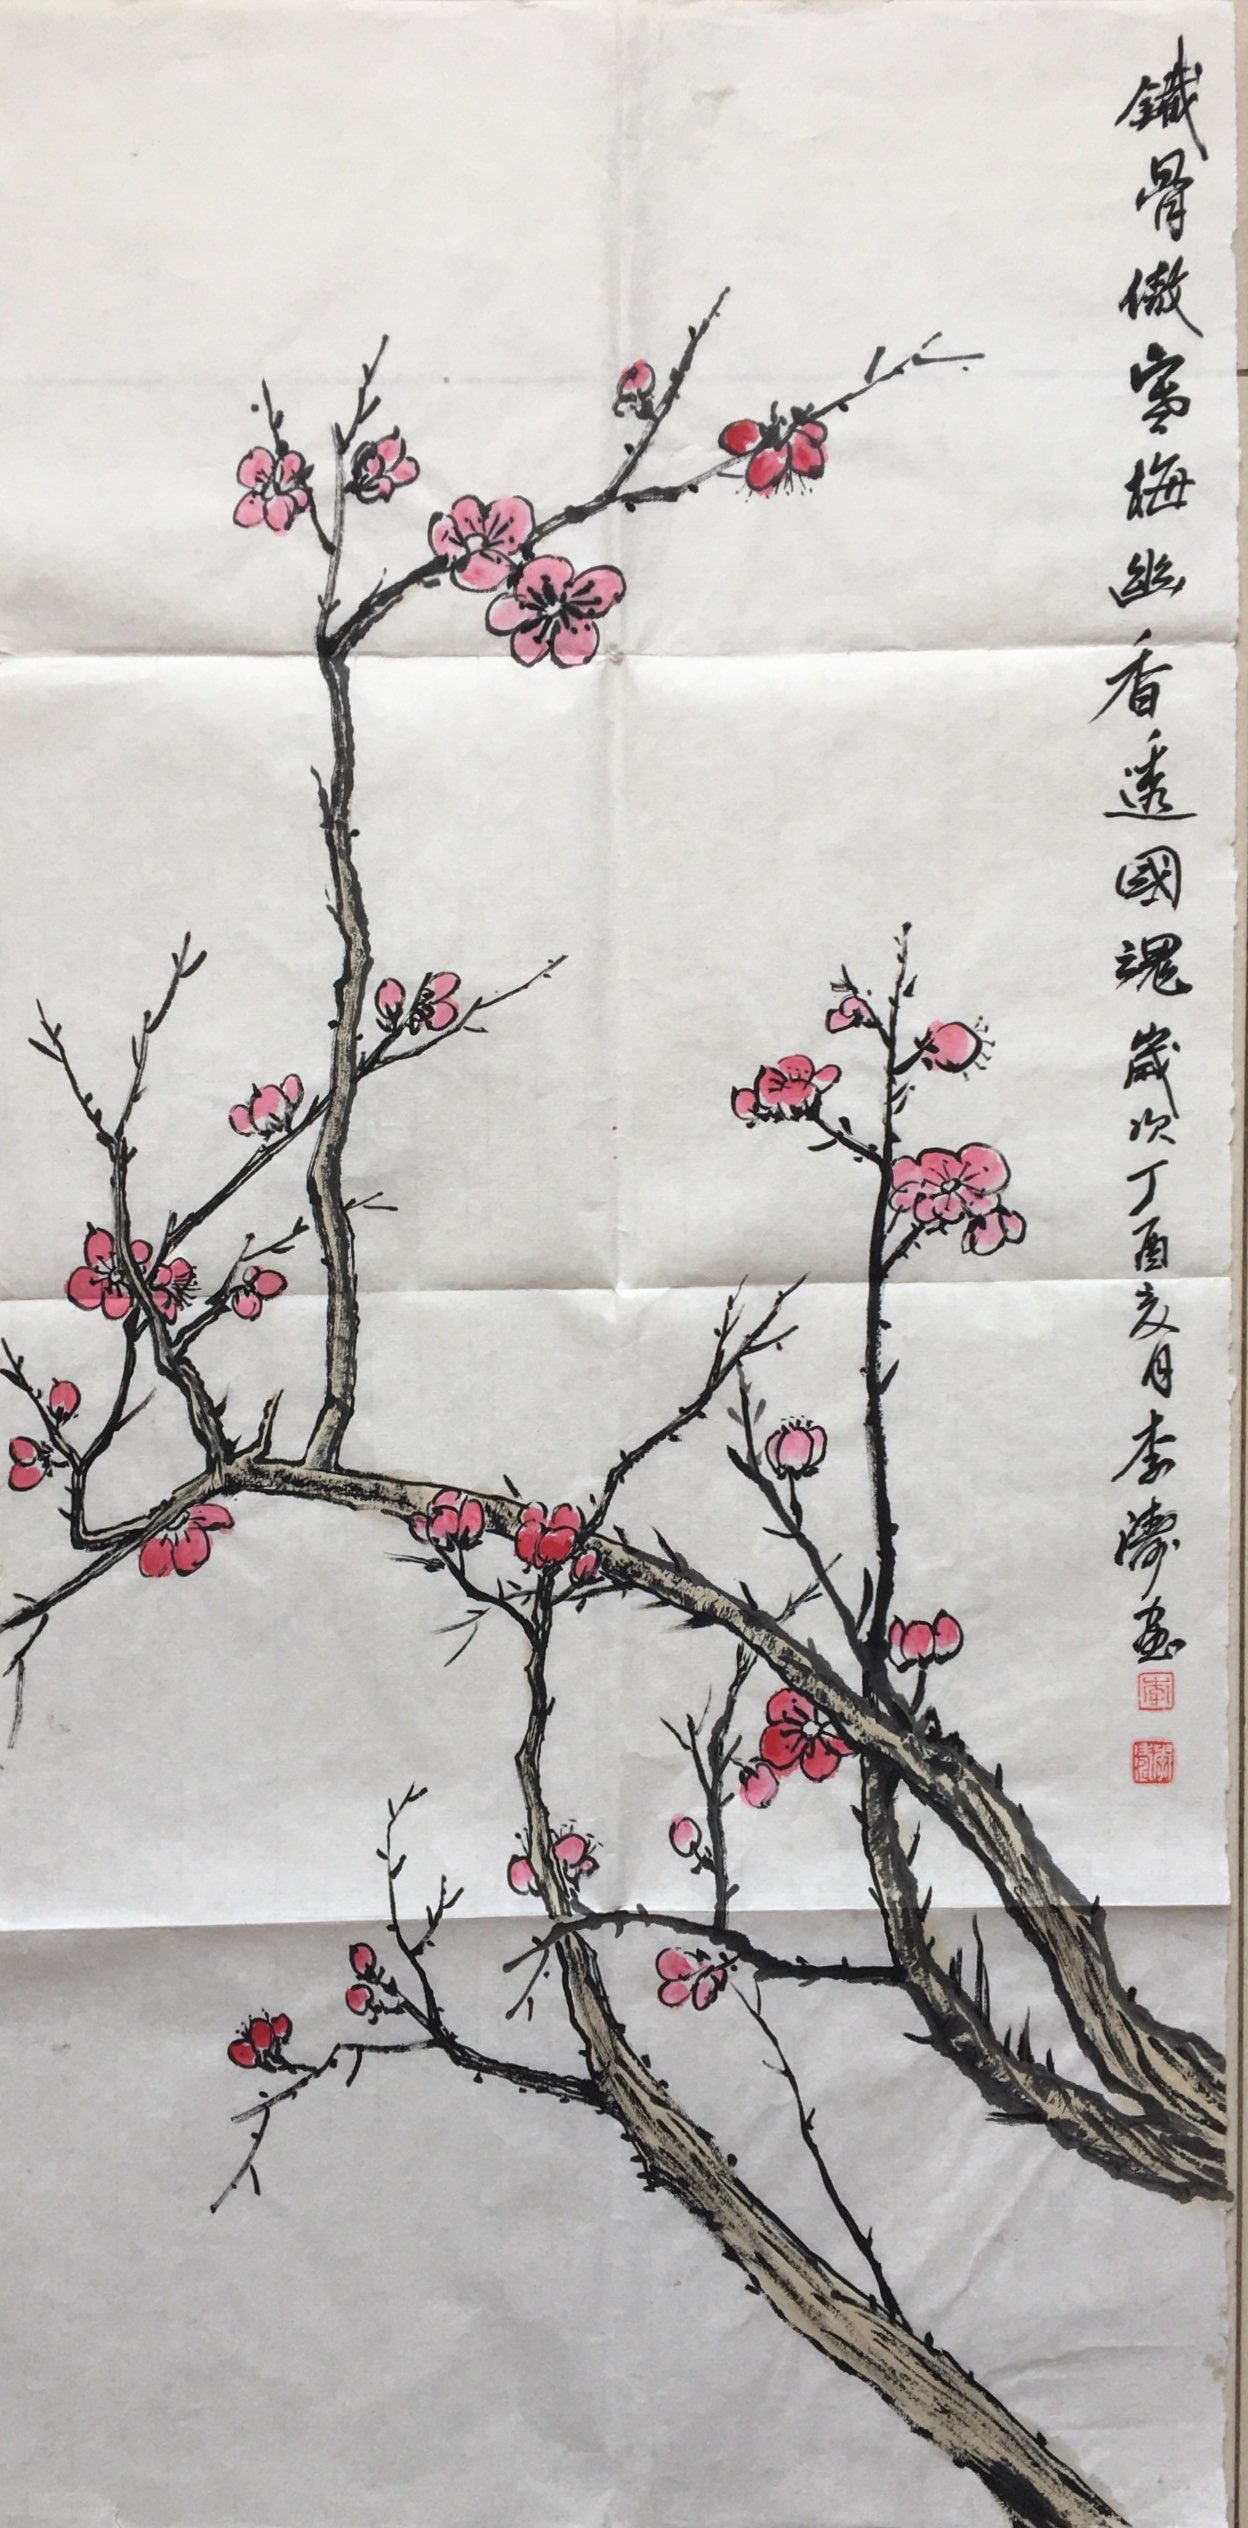 鐵骨傲寒梅幽香透國魂歲次丁酉亥月李濤画